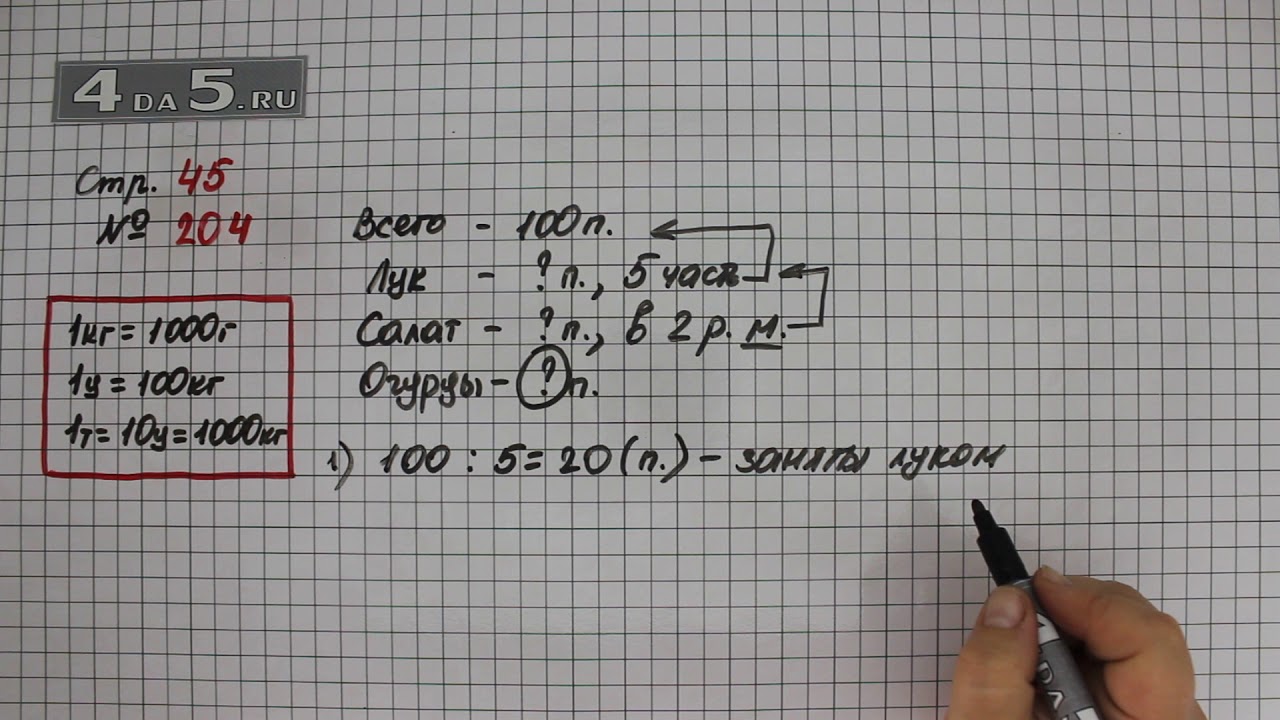 4DA5.RU
Стр. 45
№ 204
Всего - 100п.
Лук - ? п., 5 часть
Салат - ? п., в 2 р. м.
Огурцы - ? п.
1кг = 1000г
1ц = 100кг
1т = 10ц = 1000кг
1) 100 : 5 = 20 (п.) - заняты луком